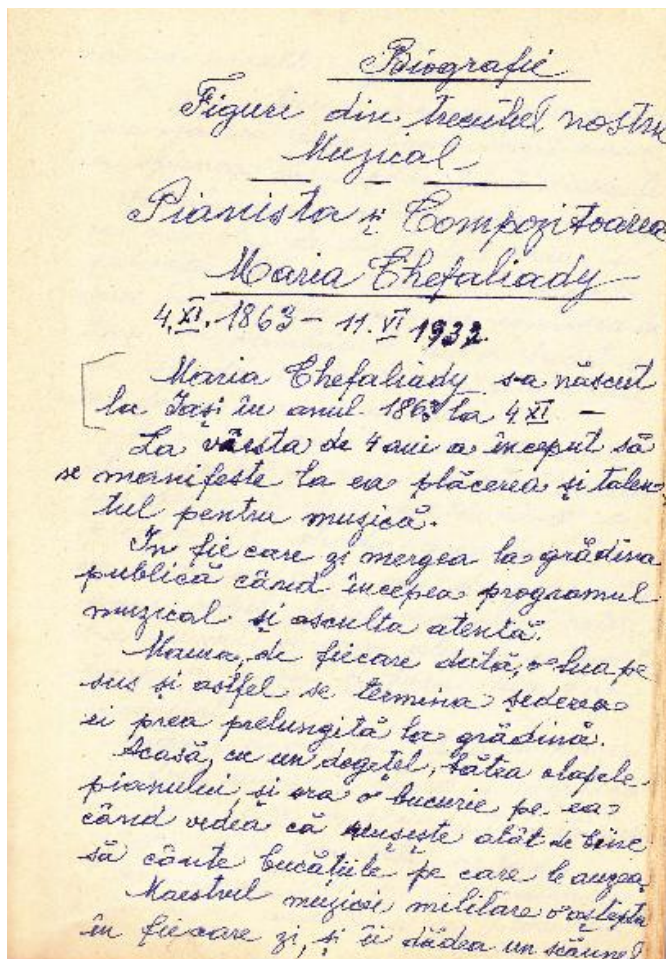 Biografie
Figuri din trecutul nostru
Muzical
Pianista și Compozitoarea
Maria Chefaliady
4.XI.1863 – 11.VI 1932.
Maria Chefaliady s-a născut
la Iași în anul 1863 la 4 XI –
La vârsta de 4 ani a început să
se manifeste la ea plăcerea și talen-
tul pentru muzică.
În fiecare zi mergea la grădina
publică când începea programul
muzical și asculta atentă.
Mama, de fiecare dată, o lua pe
sus și astfel se termina șederea
ei prea prelungită la grădină.
Acasă, cu un degețel, bătea clapele
pianului, și era o bucurie pe ea
când vedea că reușește atât de bine
să cânte bucățile pe care le auzea,
Maestrul muzicei militare o aștepta
în fiecare zi, și îi dădea un scăunel